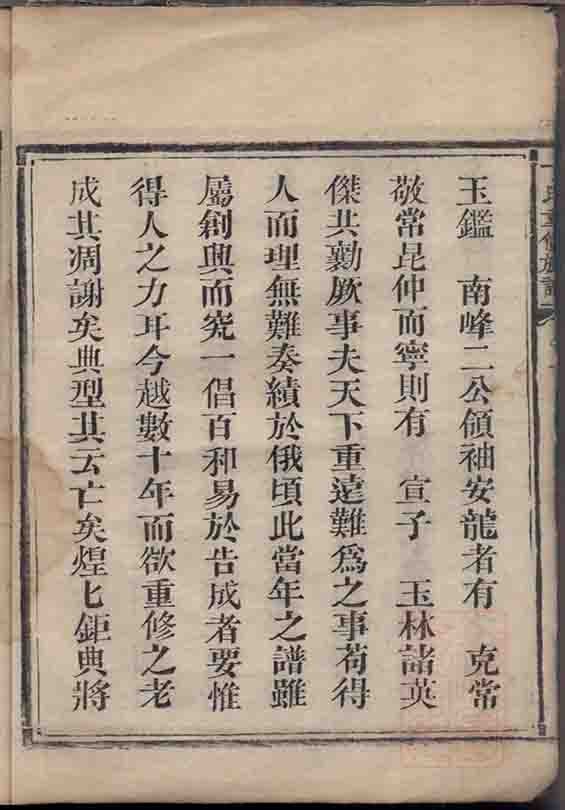 玉鑑　南峰二公領袖安龍者有　克常
敬常昆仲而寧則有　宣子　玉林諸英
傑共勷厥事夫天下重遠難爲之事苟得
人而理無難奏績於俄頃此當年之譜雖
屬創興而究一倡百和易於告成者要惟
得人之力耳今越數十年而欲重修之老
成其凋謝矣典型其云亡矣煌匕鉅典將
氏重修族譜